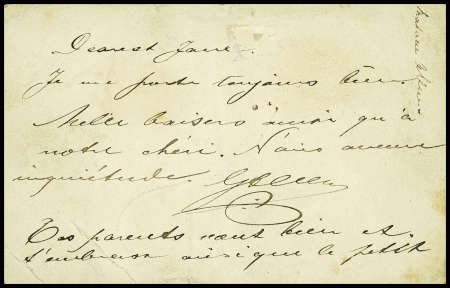 Dearest Jane.
Je me porte toujours bien.
Mille baisers ainsi qu'à
notre chéri. N'aie aucune
inquiétude.
Tes parents vont bien et
t'embrasse ainsi que le petit